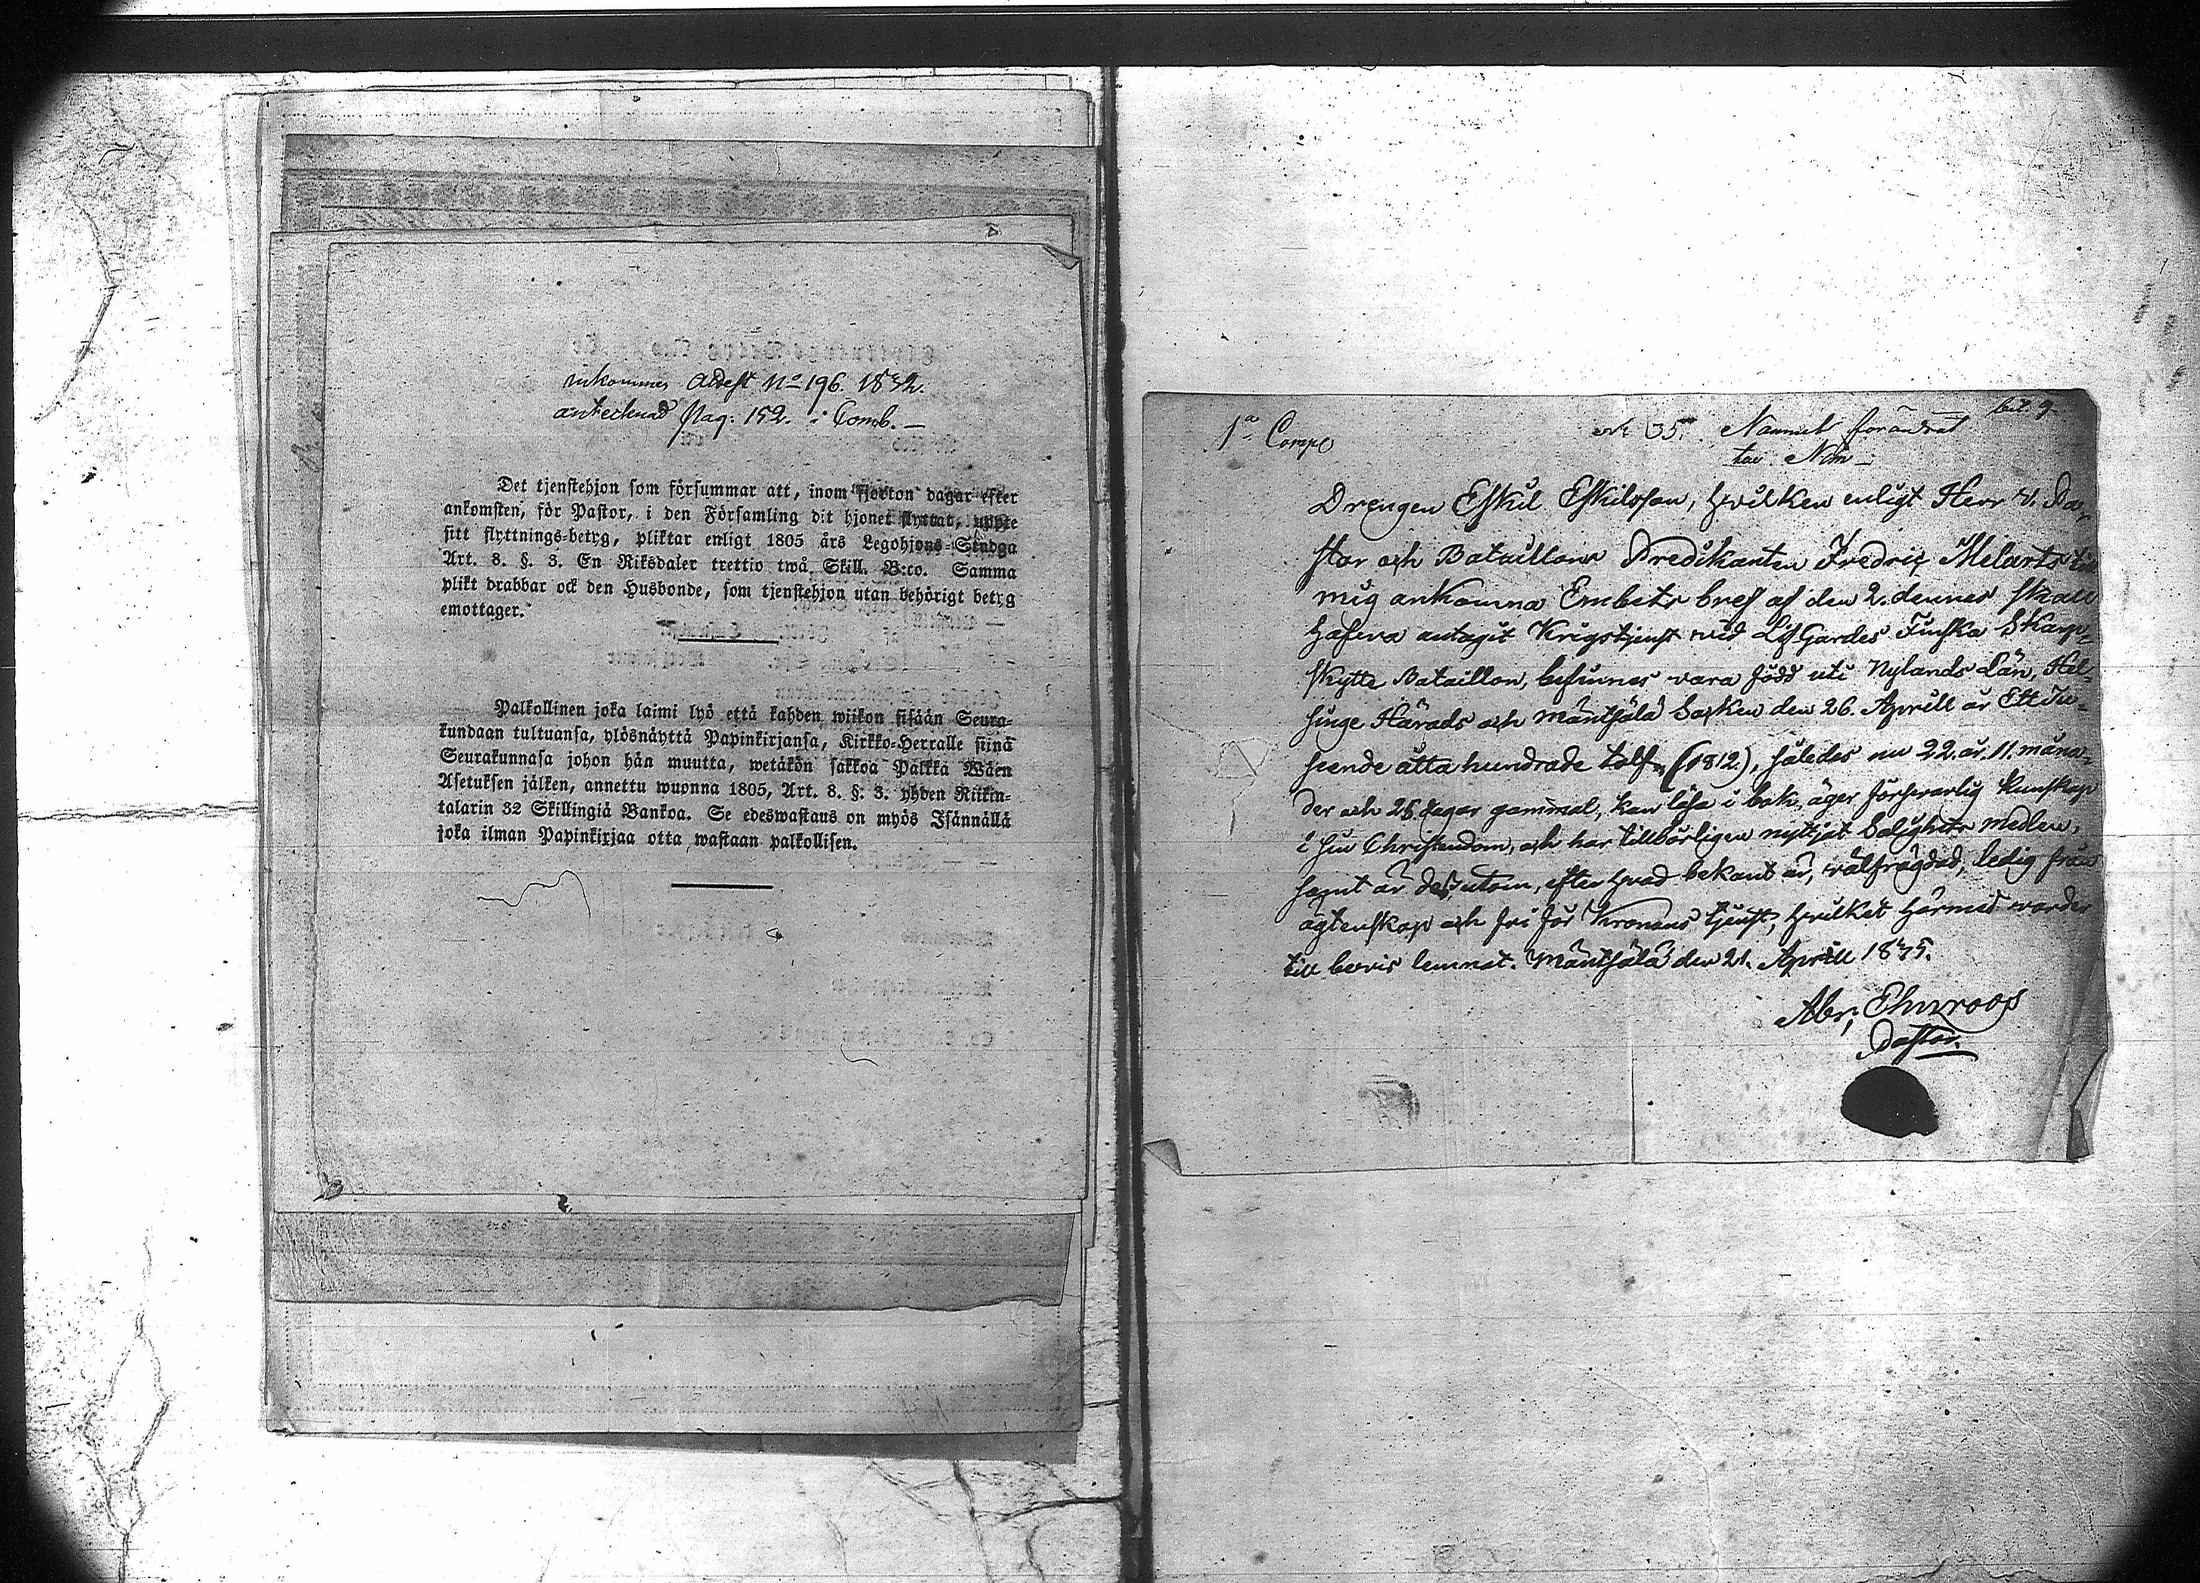 inkommer Attest No 196. 1832.
antecknad pag: 152. i Comb. —
Det tjenstehjon som försummar att, inom fjorton dagar efter
ankomsten, för Pastor, i den Församling dit hjonet flyttat, uppte
sitt flyttnings-betyg, pliktar enligt 1805 års Legohjons-Stadga
Art. 8. §. 3. En Riksdaler trettio twå Skill. B:co. Samma
plikt drabbar ock den Husbonde, som tjenstehjon utan behörigt betyg
emottager.
Palkollinen joka laimi lyö että kahden wiikon sisään Seura-
kundaan tultuansa, ylösnäyttä Papinkirjansa, Kirkko-Herralle siinä
Seurakunnasa johon hän muutta, wetäkön sakkoa Palkka Wäen
Asetuksen jälken, annettu wuonna 1805, Art. 8. §. 3. yhden Riikin-
talarin 32 Skillingiä Bankoa. Se edeswastaus on myös Isännällä
joka ilman Papinkirjaa otta wastaan palkollisen.
bil. 9.
1a Comp No 35. Namnet förändrat
Drengen Eskil Eskilsson, hvilken enligt Herr V. Pa-
stor och Bataillons Predikanten Fredric Melarts til
mig ankomna Embets bref af den 2. dennes skall
hafva antagit Krigstjenst vid LifGardes Finska Skarp-
skytte Bataillon, befinnes vara född uti Nylands Län, Hel-
singe Härads och Mäntsälä Socken den 26. Aprill år Ett Tu-
sende åtta hundrade tolf (1812), således nu 22. år. 11. måna-
der och 25. dagar gammal, kan läsa i bok, äger försvarlig kunskap
i sin Christendom, och har tillbörligen nyttjat Salighets medlen,
samt är dessutom, efter hvad bekant är, välfrägdad, ledig från
ägtenskap och fri för Kronans tjenst, hvilket härmed varder
till bevis lemnat. Mäntsälä den 21. Aprill 1835.
Abr: Ehnroos
Pastor.